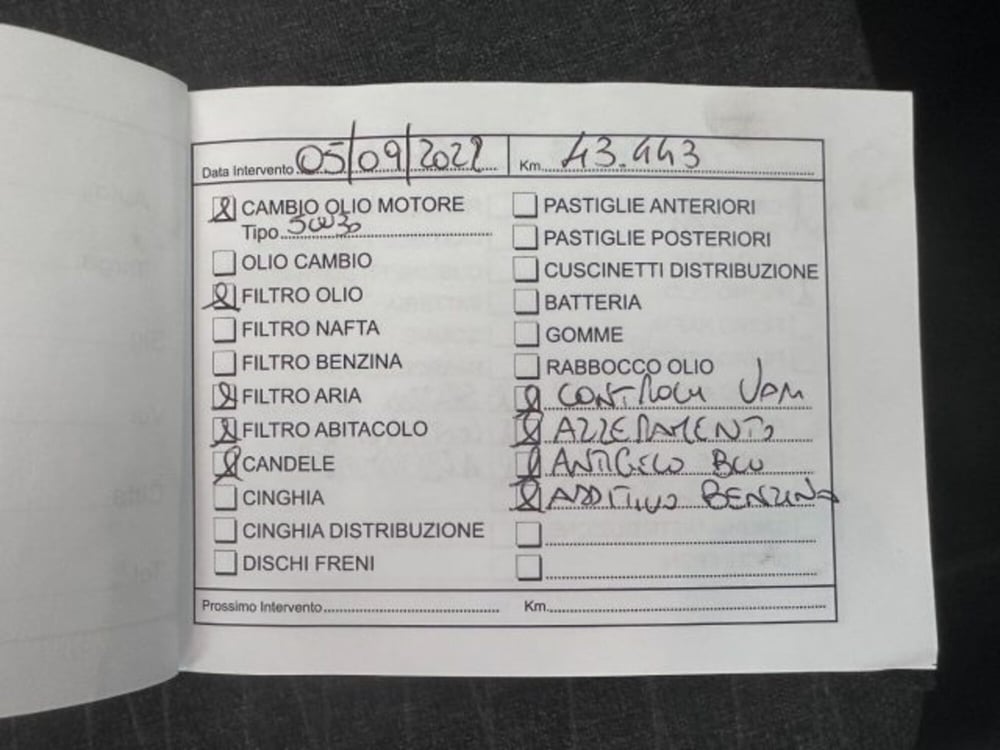 Data Intervento 05/09/2022 Km. 43.443
CAMBIO OLIO MOTORE
Tipo 5W30
OLIO CAMBIO
FILTRO OLIO
FILTRO NAFTA
FILTRO BENZINA
FILTRO ARIA
FILTRO ABITACOLO
CANDELE
CINGHIA
CINGHIA DISTRIBUZIONE
DISCHI FRENI
PASTIGLIE ANTERIORI
PASTIGLIE POSTERIORI
CUSCINETTI DISTRIBUZIONE
BATTERIA
GOMME
RABBOCCO OLIO
CONTROLLI VARI
AZZERAMENTO
ANTIGELO BLU
ADDITIVO BENZINA
Prossimo Intervento Km.